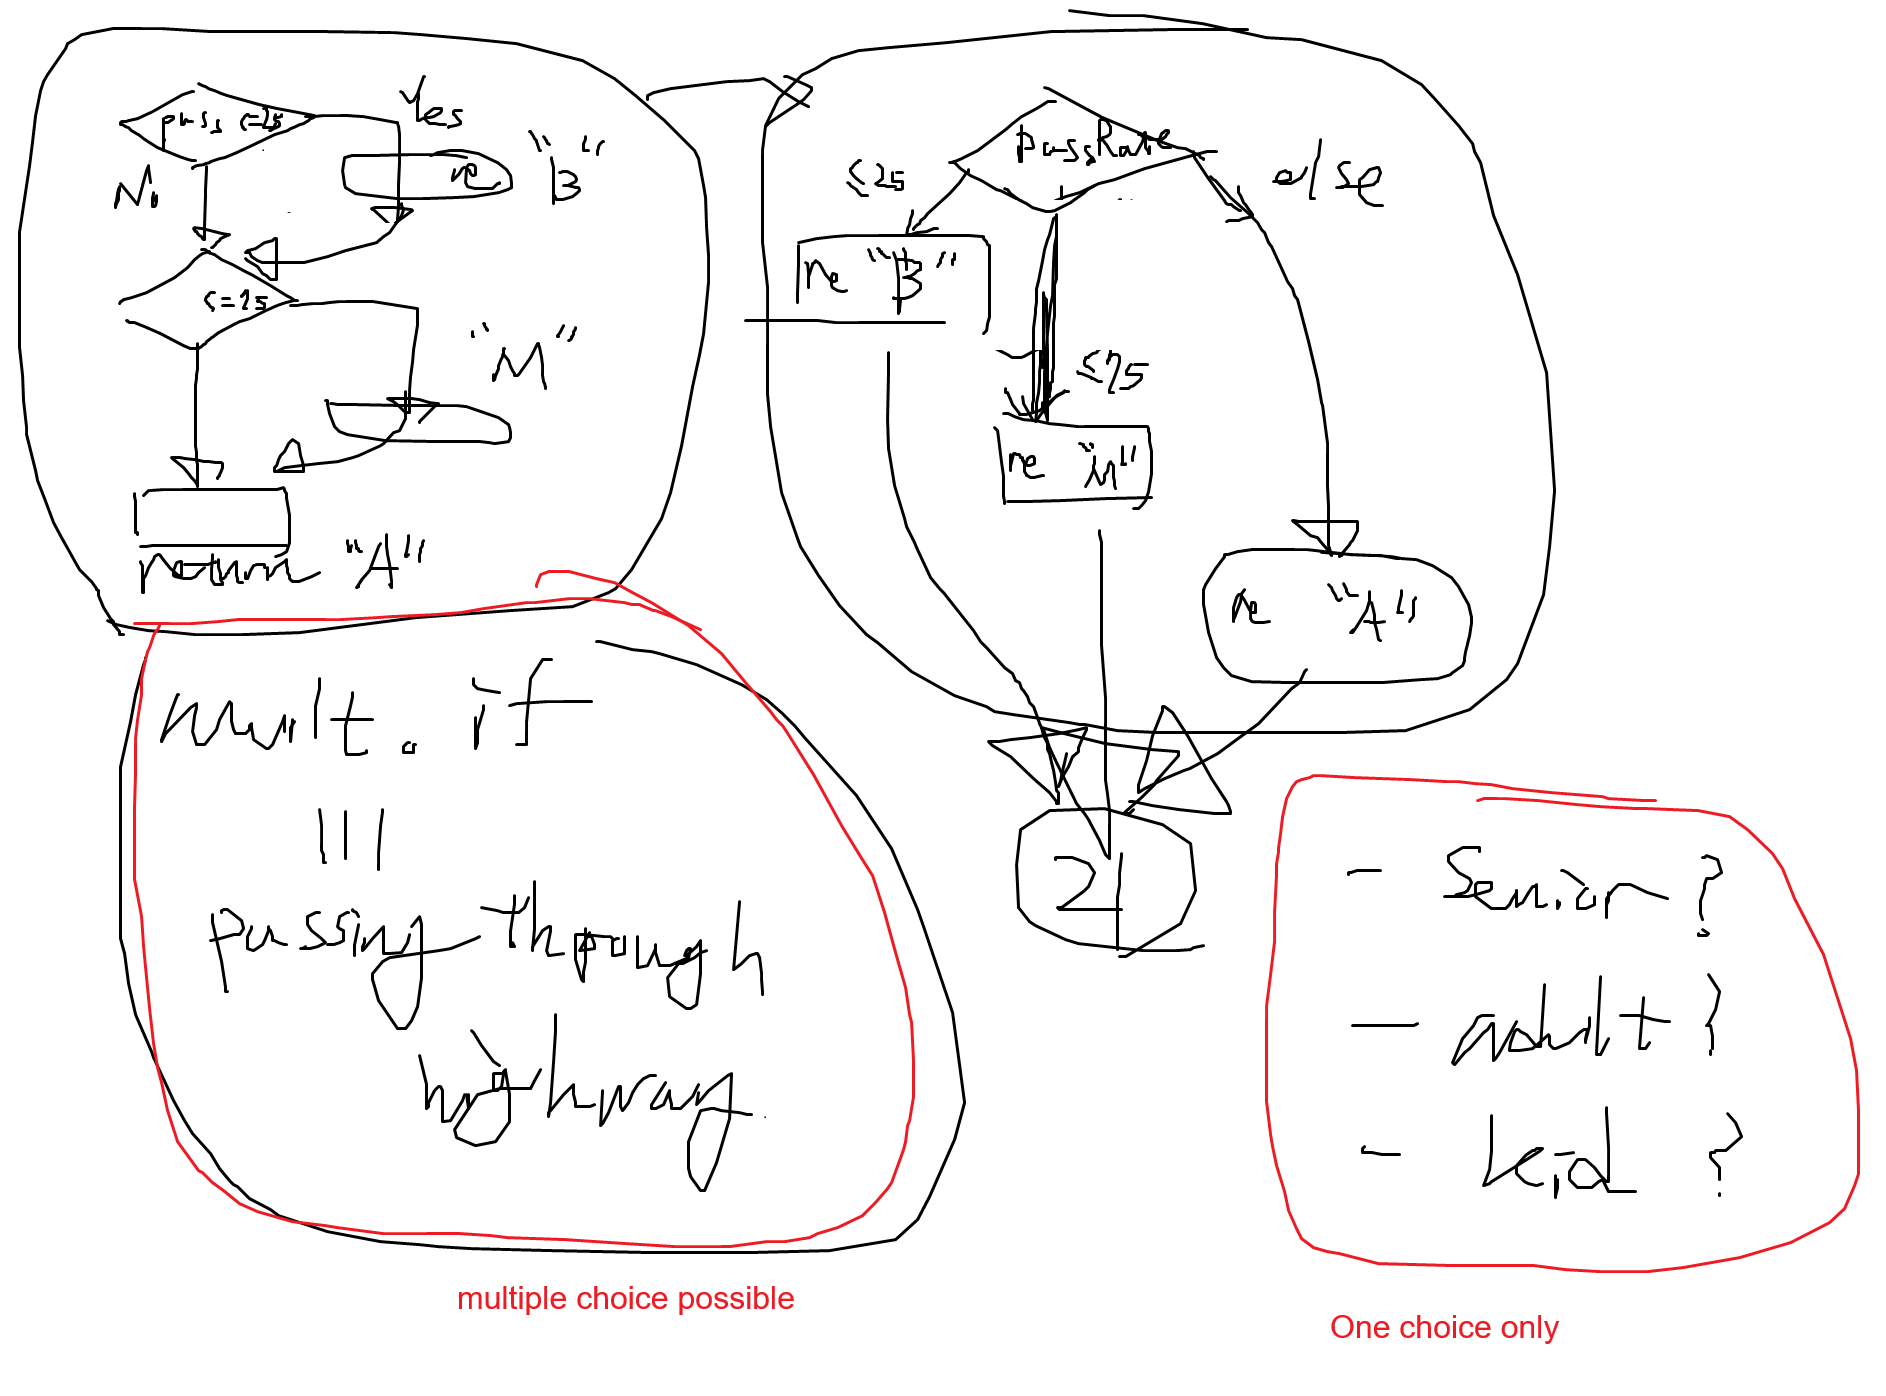 pass <=25
Yes
No
re
"B"
<=75
"M"
return "A"
passRate
≤25
else
re "B"
≤75
re "M"
re "A"
21
mult. if
|||
passing through
highway.
multiple choice possible
- Senior?
- adult?
- kid ?
One choice only